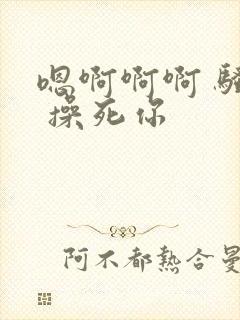 嗯啊啊啊 騷
操死你
阿不都熱合曼